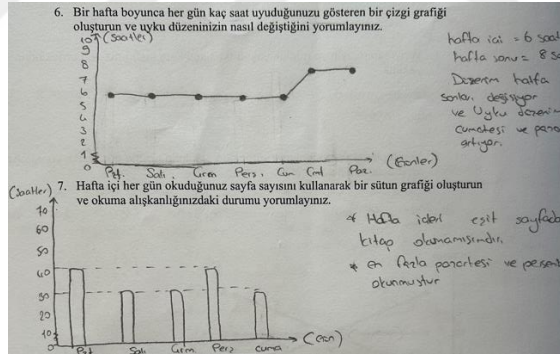 6. Bir hafta boyunca her gün kaç saat uyuduğunuzu gösteren bir çizgi grafiği
oluşturun ve uyku düzeninizin nasıl değiştiğini yorumlayınız.
(Saatler)
10
9
8
7
6
5
4
3
2
1
0
Pzt. Salı. Çrm Pers. Cum Cmt Paz.
(Günler)
hafta içi = 6 saat
hafta sonu = 8 sa
Düzenim hafta
sonları değişiyor
ve Uyku düzenim
cumartesi ve pazar
artıyor.
7. Hafta içi her gün okuduğunuz sayfa sayısını kullanarak bir sütun grafiği oluşturun
ve okuma alışkanlığınızdaki durumu yorumlayınız.
(Saatler)
70
60
50
40
30
20
10
0
Pzt Salı Çrm Perş cuma
(Gün)
* Hafta içleri eşit sayfada
kitap okunamamışımdır.
* en fazla pazartesi ve perşem
okunmuştur